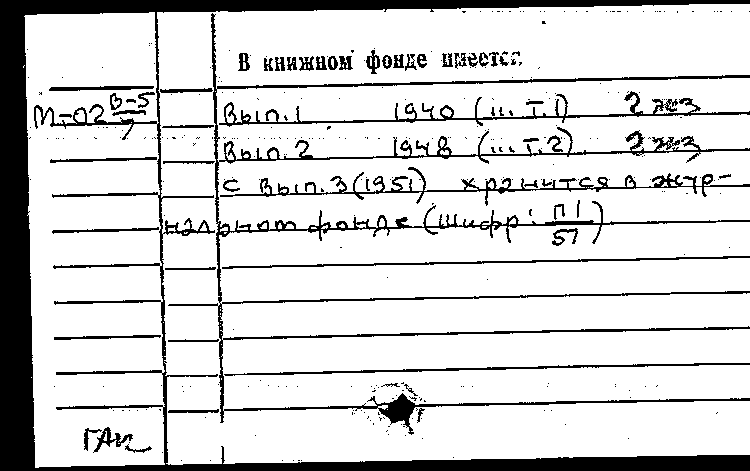 В книжном фонде имеется:
М-02 В-5/7 Вып.1 1940 (ш. Т.1) 2 экз
Вып.2 1948 (ш. Т.2) 2 экз
с вып.3 (1951) хранится в жур-
нальном фонде (шифр: П1/57)
ГАИ